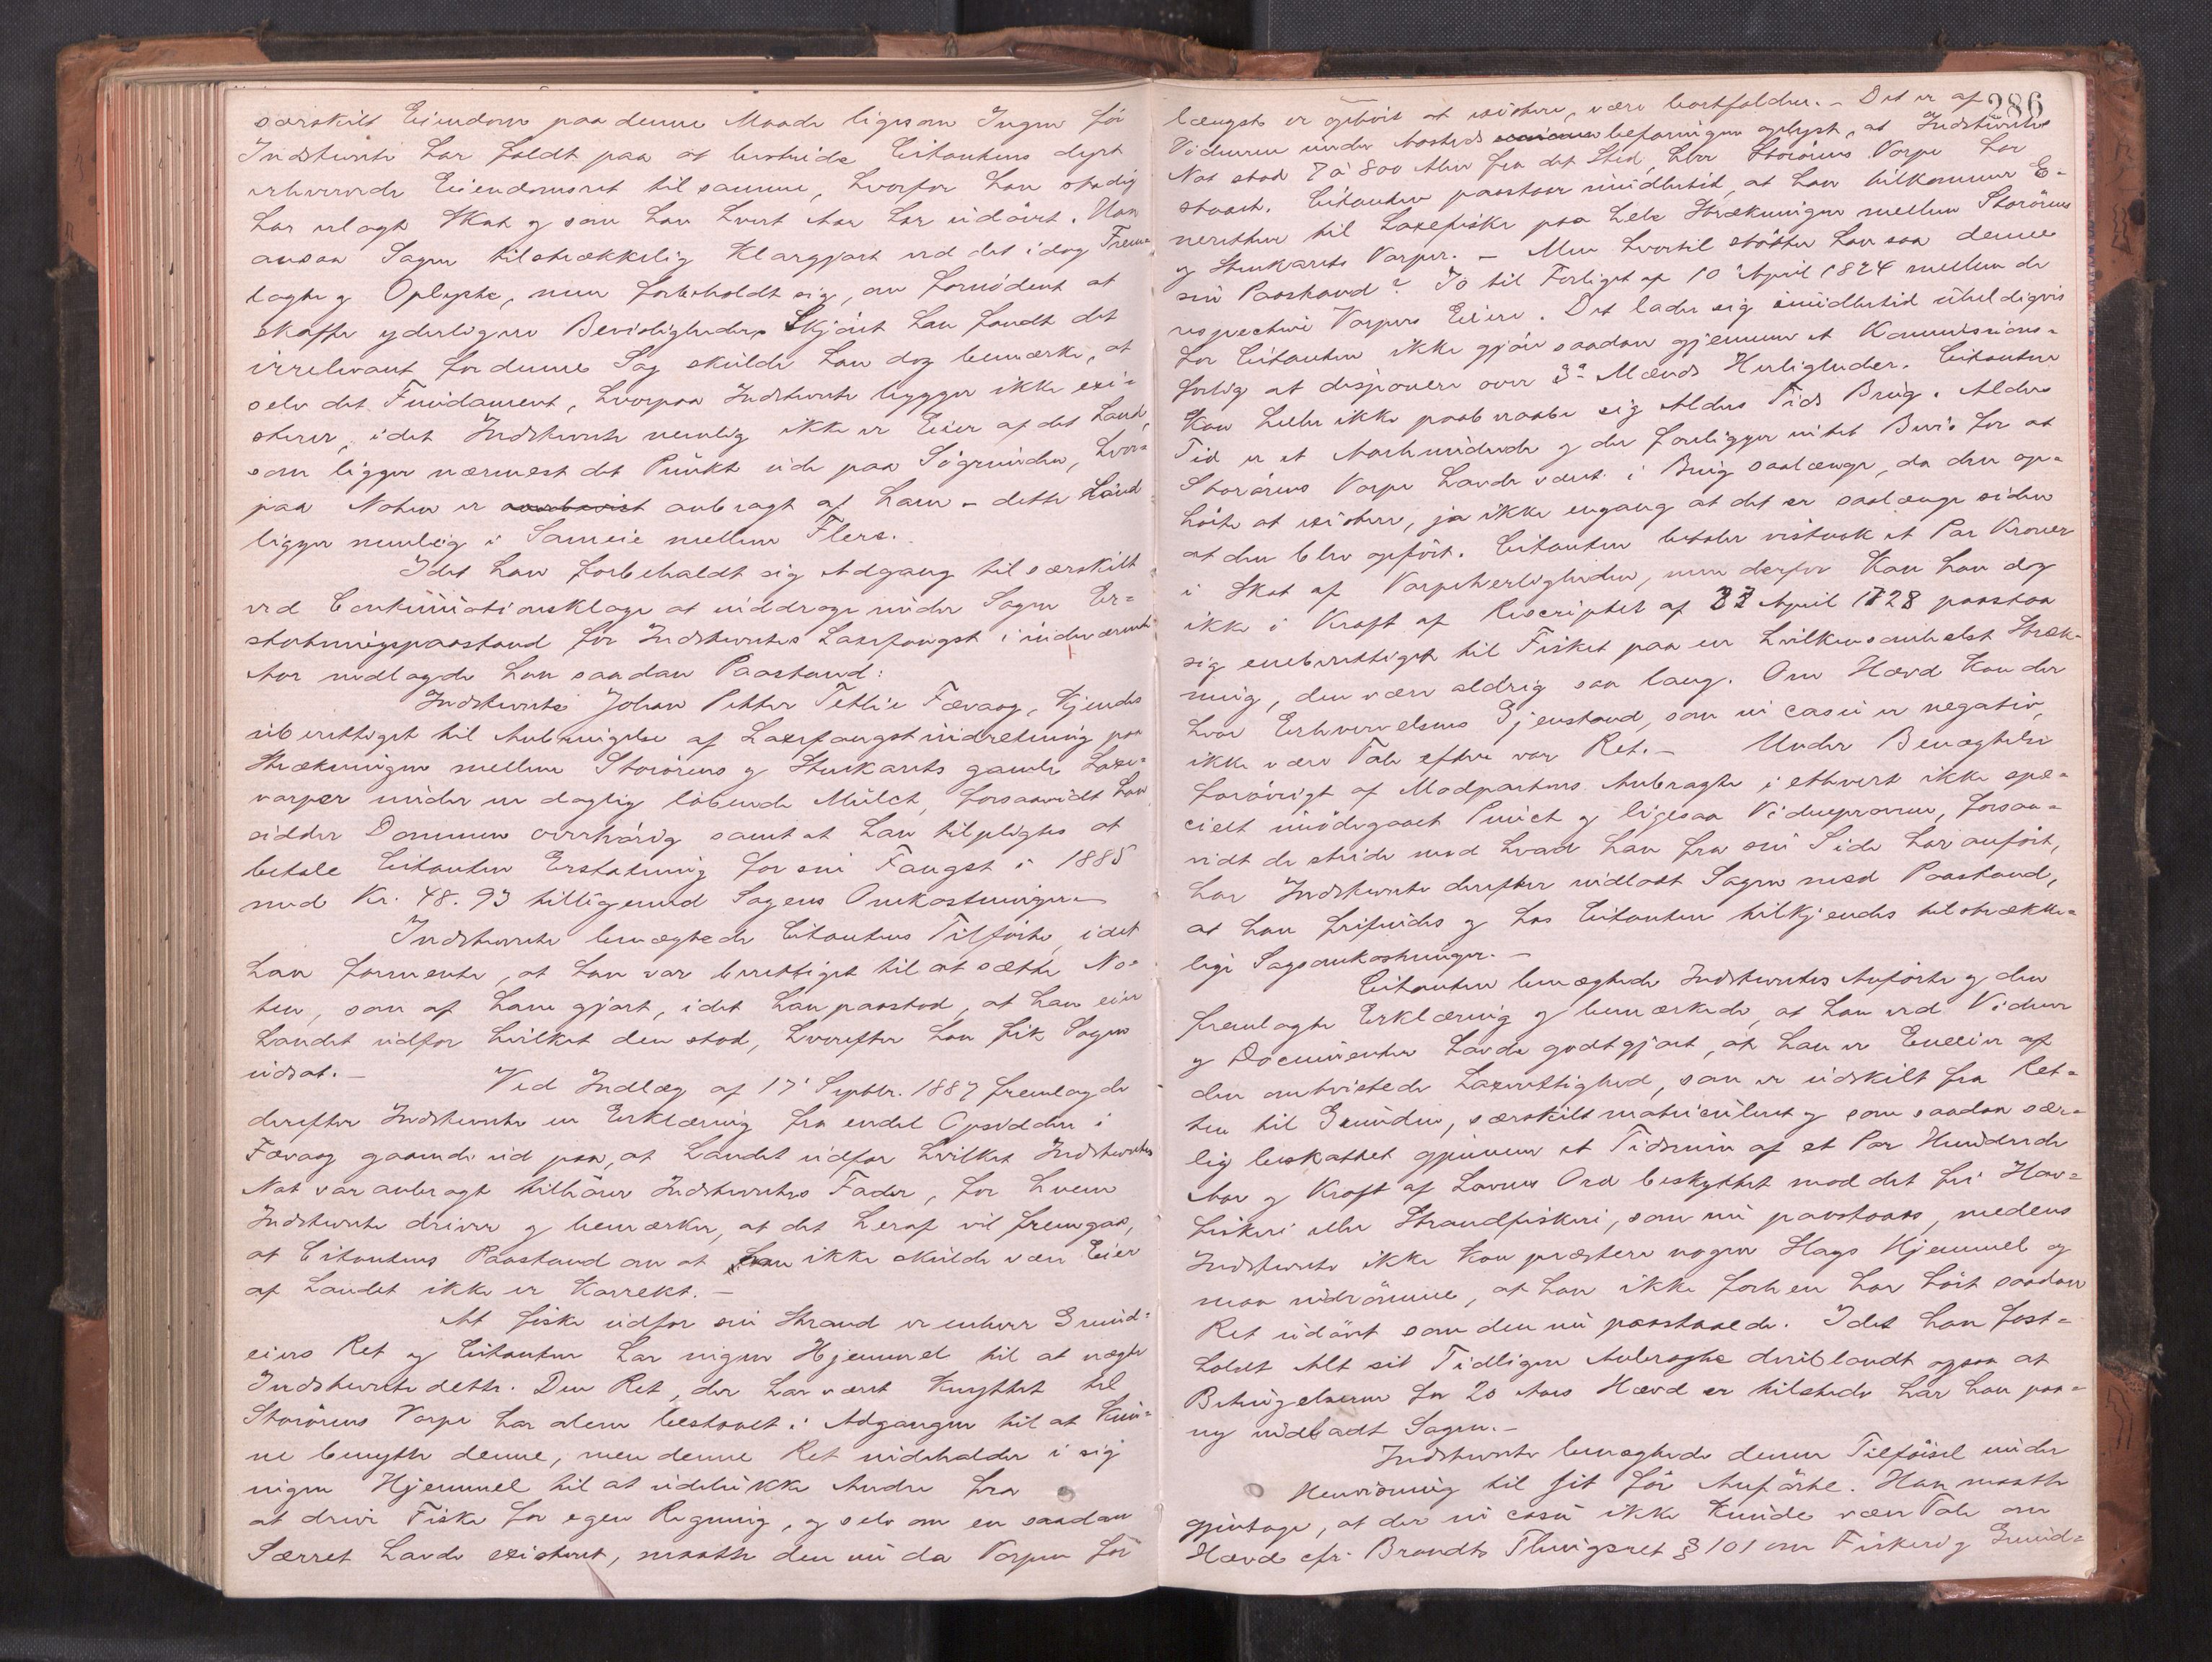 særskilt Eiendom paa denne Maade ligesom Ingen før
Indstevnte har faldt paa at bestride Citantens dyrt
erhvervede Eiendomsret til samme, hvorfor han stadig
har erlagt Skat og som han hvert Aar har udøvet. Han
ansaa Sagen tilstrækkelig Klargjort ved det idag Frem-
lagte og Oplyste, men forbeholdt sig, om fornødent at
skaffe yderligere Bevisligheder. Skjønt han fandt det
irrelevant for denne Sag skulde han dog bemærke, at
selv det Fundament, hvorpaa Indstevnte bygger ikke exi-
sterer, idet Indstevnte nemlig ikke er Eier af det Land,
som ligger nærmest det Punkt ude paa Søgrunden, hvor-
paa Noten er anbragt af ham – dette Land
ligger nemlig i Sameie mellem Flere.
Idet han forbeholdt sig Adgang til særskilt
ved Continuationsklage at inddrage under Sagen Er-
statningspaastand for Indstevntes Laxefangst i indeværende
Aar nedlagde han saadan Paastand:
Indstevnte Johan Petter Tetlie Færaag, kjendes
uberettiget til Anbringelse af Laxefangstindretning paa
Strækningen mellem Storørens og Stenkarets gamle Laxe-
varper under en daglig løbende Mulct, forsaavidt han
sidder Dommen overhørig samt at han tilpligtes at
betale Citanten Erstatning for sin Fangst i 1885
med Kr. 48.93 tilligemed Sagens Omkostninger.–
Indstevnte benægtede Citantens Tilførte, idet
han formente, at han var berettiget til at sætte No-
ten, som af ham gjort, idet han paastod, at han eier
Landet udfor hvilket den stod, hvorefter han fik Sagen
udsat.– Ved Indlæg af 17' Septbr. 1887 fremlagde
derefter Indstevnte en Erklæring fra endel Opsiddere i
Færaag gaaende ud paa, at Landet udfor hvilket Indstevntes
Not var anbragt tilhører Indstevntes Fader, for hvem
Indstevnte driver og bemærker, at det heraf vil fremgaa,
at Citantens Paastand om at han ikke skulde være Eier
af Landet ikke er Korrekt.–
At fiske udfor sin Strand er enhver Grund-
eiers Ret og Citanten har ingen Hjemmel til at nægte
Indstevnte dette. Den Ret, der har været knyttet til
Storørens Varpe har alene bestaaet i Adgangen til at kun-
ne benytte denne, men denne Ret indeholder i sig
ingen Hjemmel til at udelukke Andre fra
at drive Fiske for egen Regning, og selv om en saadan
Særret havde existeret, maatte den nu da Varpen for
286
længst er ophørt at existere, være bortfalden.– Det er af
Vidnerne under Aasteds befaringen oplyst, at Indstevntes
Not stod 7 à 800 Alen fra det Sted, hvor Storørens Varpe har
staaet. Citanten paastaar imidlertid, at han tilkommer E-
neretten til Laxefiske paa hele Strækningen mellem Storørens
og Stenkarets Varper.– Men hvortil støtter han saa denne
sin Paastand? Jo til Forliget af 10 April 1824 mellem de
respective Varpers Eiere. Det lader sig imidlertid uheldigvis
for Citanten ikke gjøre saadan gjennem et Kommissions-
forlig at disponere over 3die Mænds Herligheder. Citanten
Kan heller ikke paaberaabe sig Alders Tids Brug. Alders
Tid er et Aarhundrede og der foreligger intet Bevis for at
Storørens Varpe havde været i Brug saalænge, da den op-
hørte at existere, ja ikke engang at det er saalænge siden
at den blev opført. Citanten betaler vistnok et Par Kroner
i Skat af Varpeherligheden, men derfor Kan han dog
ikke i Kraft af Rescriptet af 27 April 1728 paastaa
sig eneberettiget til Fisket paa en hvilkensomhelst Stræk-
ning, den være aldrig saa lang. Om Hævd Kan der
hvor Erhvervelsens Gjenstand, som in casu er negativ,
ikke være Tale efter vor Ret.– Under Benægtelse
forøvrigt af Modpartens Anbragte i ethvert ikke spe-
cielt imødegaaet Punct og ligesaa Vidneprovene, forsaa-
vidt de stride mod hvad han fra sin Side har anført,
har Indstevnte derefter indladt Sagen med Paastand,
at han frifindes og hos Citanten tilkjendes tilstrække-
lige Sagsomkostninger.–
Citanten benægtede Indstevntes Anførte og den
fremlagte Erklæring og bemærkede, at han ved Vidner
og Documenter havde godtgjort, at han er Eneeier af
den omtvistede Laxerettighed, som er udskilt fra Ret-
ten til Grunden, særskilt matriculeret og som saadan sær-
lig beskattet gjennem et Tidsrum af et Par Hundrede
Aar og Kraft af Lovens Ord beskyttet mod det fri Hav-
fiskeri eller Strandfiskeri, som nu paastaaes, medens
Indstevnte ikke kan præstere nogen Slags Hjemmel og
maa indrømme, at han ikke forhen har hørt saadan
Ret udøvet som den nu paastaaede. Idet han fast-
holdt Alt sit Tidligere Anbragte deriblandt ogsaa at
Betingelserne for 20 Aars Hævd er tilstede har han paa-
ny indladt Sagen.–
Indstevnte benægtede denne Tilførsel under
Henvisning til sit før Anførte. Han maatte
gjentage, at der in casu ikke kunde være Tale om
Hævd cfr. Brandts Thingsret § 101 om Fiskeri og Grund-